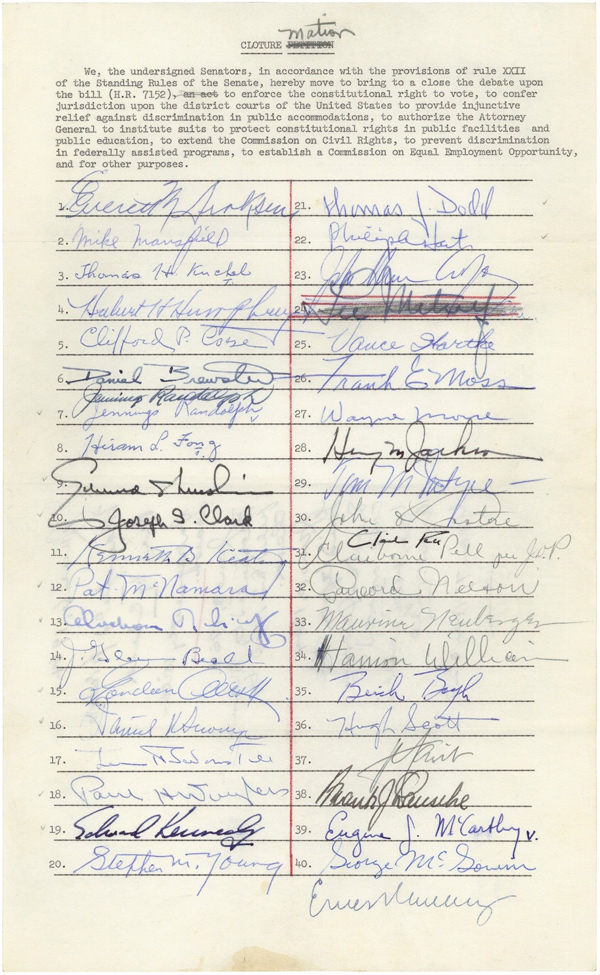 motion
CLOTURE PETITION
We, the undersigned Senators, in accordance with the provisions of rule XXII
of the Standing Rules of the Senate, hereby move to bring to a close the debate upon
the bill (H.R. 7152), an act to enforce the constitutional right to vote, to confer
jurisdiction upon the district courts of the United States to provide injunctive
relief against discrimination in public accommodations, to authorize the Attorney
General to institute suits to protect constitutional rights in public facilities and
public education, to extend the Commission on Civil Rights, to prevent discrimination
in federally assisted programs, to establish a Commission on Equal Employment Opportunity,
and for other purposes.
1. Everett M Dirksen
2. Mike Mansfield
3. Thomas H. Kuchel
4. Hubert H Humphrey
5. Clifford P. Case
6. Daniel Brewster
Jennings Randolph
7. Jennings Randolph
8. Hiram L. Fong
9.
10. Joseph S. Clark
11. Kenneth B Keating
12. Pat McNamara
13.
14. J. Glenn Beall
15. Gordon Allott
16. Daniel K Inouye
17.
18. Paul H Douglas
19. Edward Kennedy
20. Stephen M. Young
21. Thomas J. Dodd
22. Philip A Hart
23.
24. Lee Metcalf
25. Vance Hartke
26. Frank E Moss
27. Wayne Morse
28. Henry M Jackson
29. Tom McIntyre
30. John O Pastore
31. Claiborne Pell per J.O.P.
32. Gaylord Nelson
33. Maurine Neuberger
34. Harrison Williams
35. Birch Bayh
36. Hugh Scott
37.
38. Frank J Lausche
39. Eugene J. McCarthy
40. George McGovern